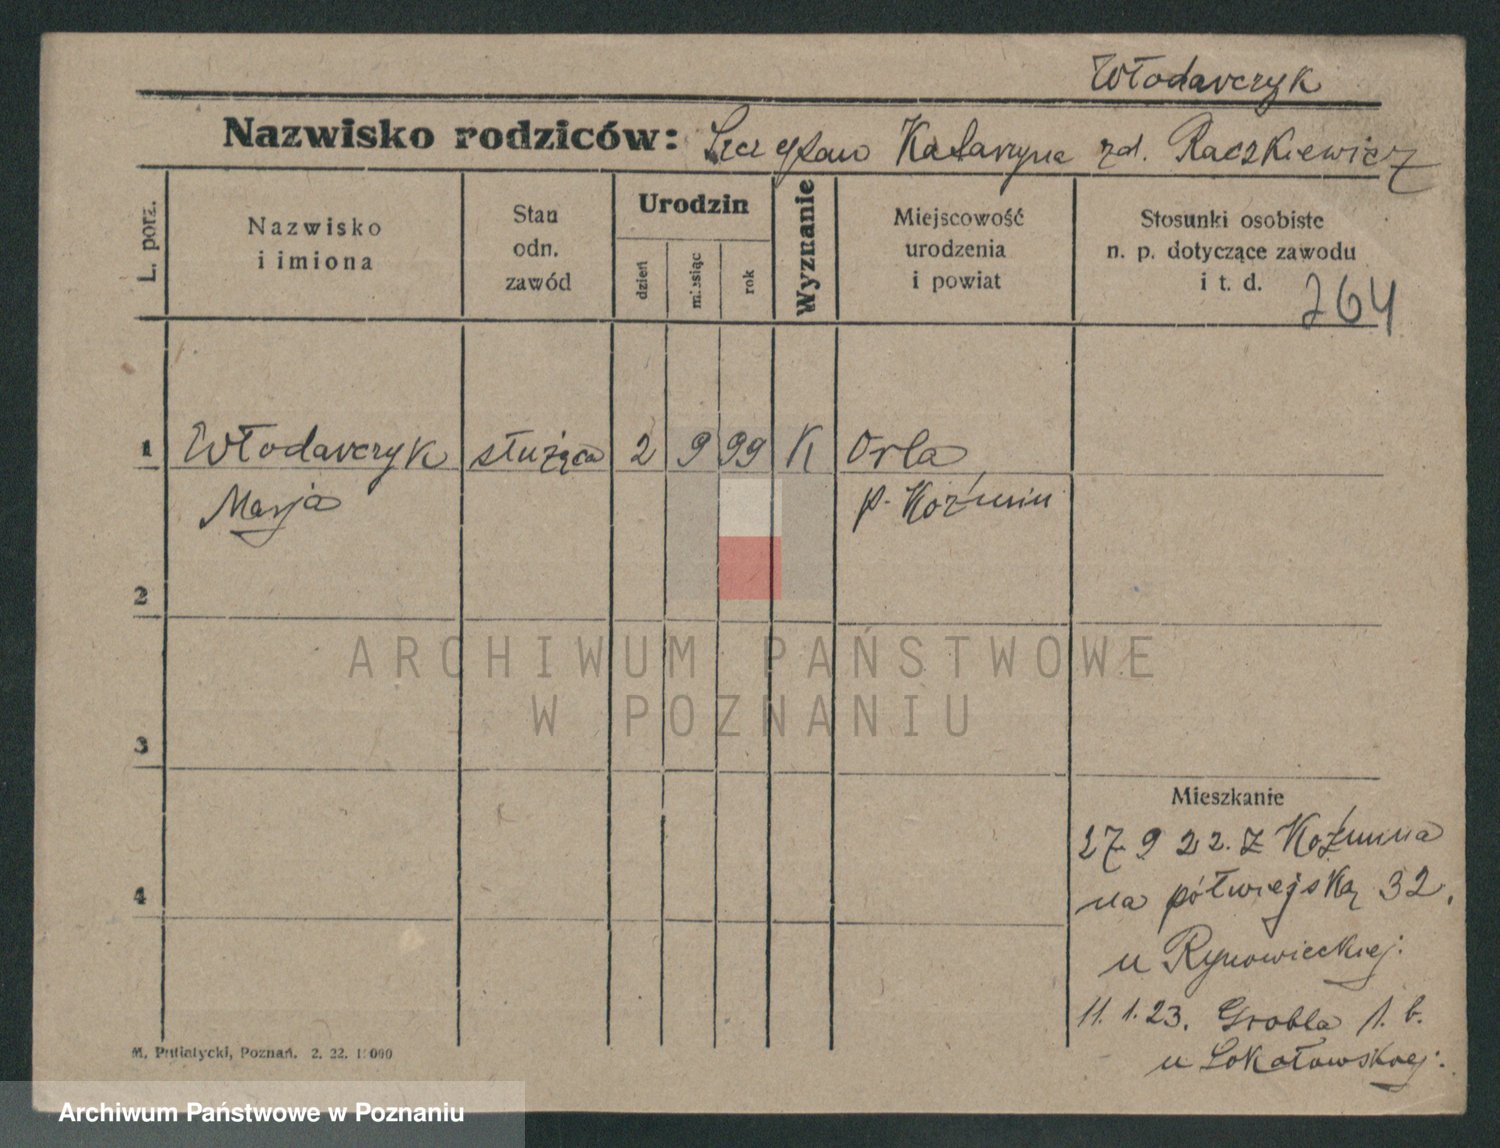 Włodarczyk
Nazwisko rodziców: Szczepan Katarzyna zd. Raczkiewicz
L. porz.
Nazwisko
i imiona
Stan
odn.
zawód
Urodzin
dzień
miesiąc
rok
Wyznanie
Miejscowość
urodzenia
i powiat
Stosunki osobiste
n. p. dotyczące zawodu
i t. d.
264
1 Włodarczyk służąca 2 9 99 K Orla
Marja p. Koźmin
2
3
Mieszkanie
27 9 22. z Koźmina
na półwiejską 32.
4
u Rynowieckiej:
11. 1. 23. Grobla 1. b.
u Sokołowskiej:
M. Putiatycki, Poznań. 2. 22. 1000
ARCHIWUM PAŃSTWOWE
W POZNANIU
Archiwum Państwowe w Poznaniu